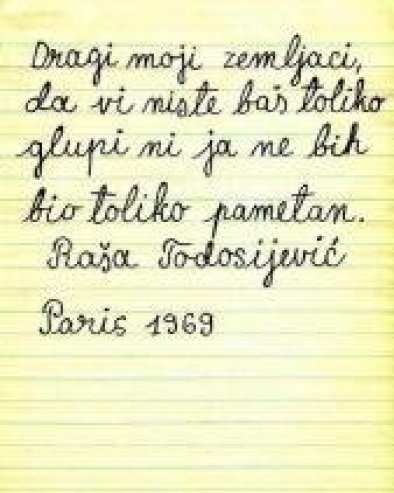 Dragi moji zemljaci,
da vi niste baš toliko
glupi ni ja ne bih
bio toliko pametan.
Raša Todosijević
Paris 1969